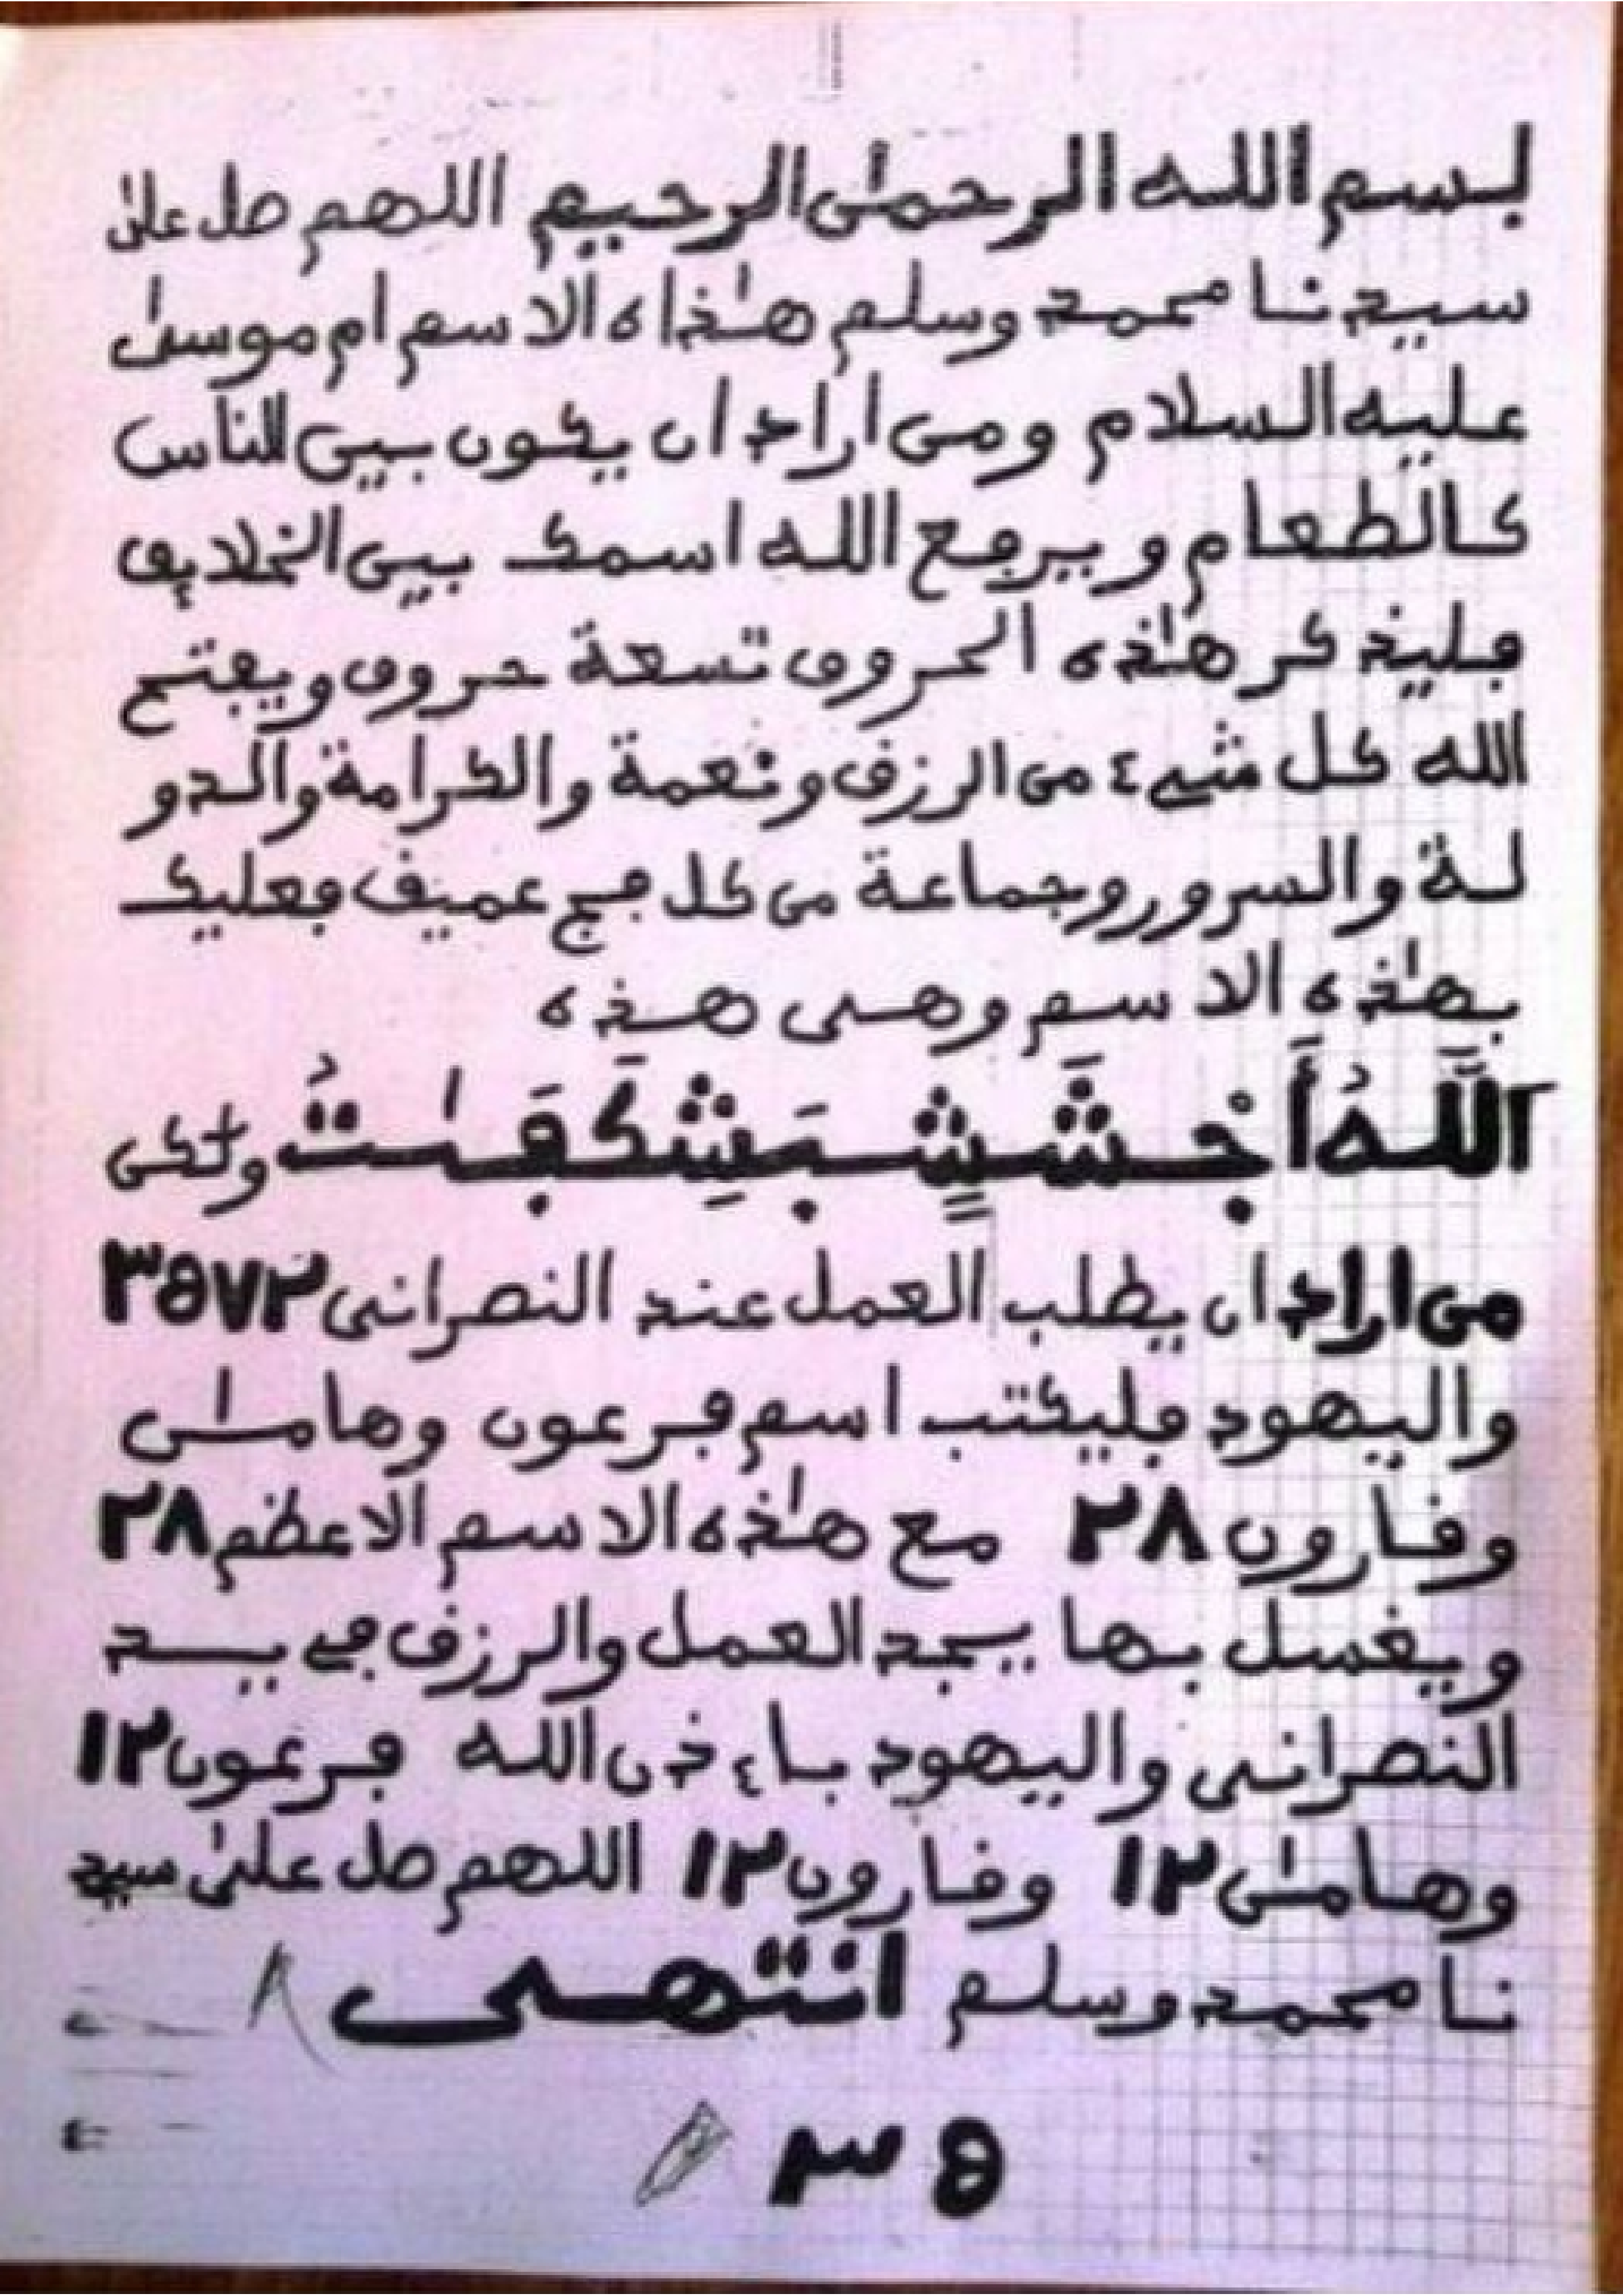 بسم الله الرحمٰن الرحيم اللهم صل علىٰ
سيدنا محمد وسلم هٰذاه الاسم ام موسىٰ
عليه السلام ومن اراد ان يكون بين الناس
كالطعام ويرفع الله اسمك بين الخلائق
فليذكر هٰذه الحروف تسعة حروف ويفتح
الله كل شيء من الرزق ونعمة والكرامة والدو
لة والسرور وجماعة من كل فج عميق فعليك
بهٰذه الاسم وهى هذه
اَللَّهُ أَجْشَشٍبَشِكَفَٰتُ ولٰكن
من اراد ان يطلب العمل عند النصرانى ٣٥٧٢
واليهود فليكتب اسم فرعون وهامٰن
وقارون ٢٨ مع هٰذه الاسم الاعظم ٢٨
ويغسل بها يجد العمل والرزق في يد
النصرانى واليهود باءذن الله فرعون ١٢
وهامٰن ١٢ وقارون ١٢ اللهم صل علىٰ سيد
نا محمد وسلم انتهى
٣٥